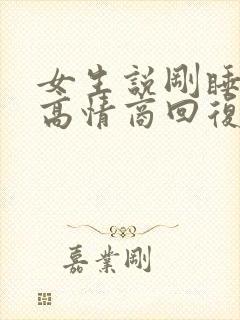 女生説剛睡
高情商回復
嘉業剛